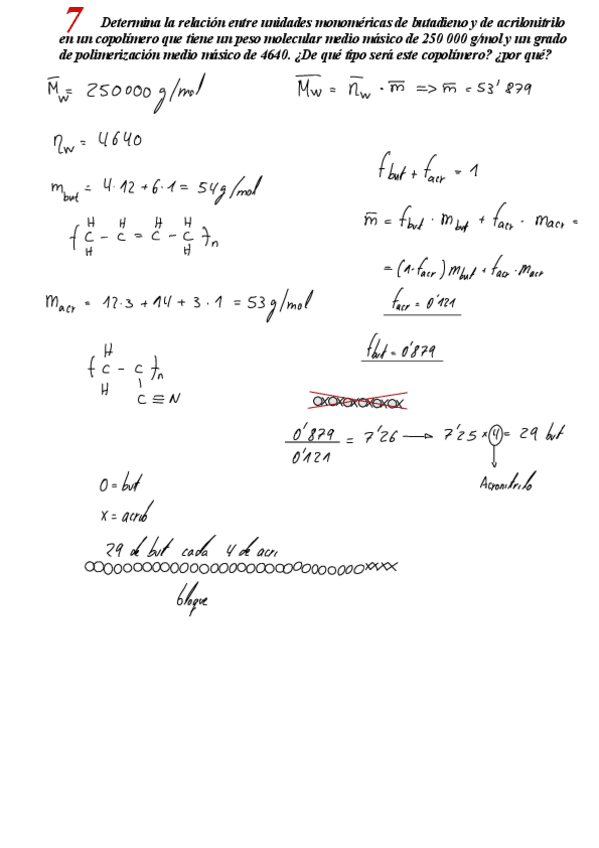 7 Determina la relación entre unidades monoméricas de butadieno y de acrilonitrilo
en un copolímero que tiene un peso molecular medio másico de 250 000 g/mol y un grado
de polimerización medio másico de 4640. ¿De qué tipo será este copolímero? ¿por qué?
M̅w = 250000 g/mol
M̅w = n̅w · m̅ => m̅ = 53'879
nw = 4640
fbut + facr = 1
mbut = 4·12 + 6·1 = 54g/mol
H H H H
{ C - C = C - C }n
H H
m̅ = fbut · mbut + facr · macr =
= (1-facr) mbut + facr · macr
facr = 0'121
macr = 12·3 + 14 + 3·1 = 53g/mol
fbut = 0'879
H
{ C - C }n
H C ≡ N
OXOXOXOXOXOX
0'879 / 0'121 = 7'26 → 7'25 × 4 = 29 but
Acronitrilo
O = but
X = acrib
29 de but cada 4 de acri
OOOOOOOOOOOOOOOOOOOOOOOOOOOOOXXXX
bloque